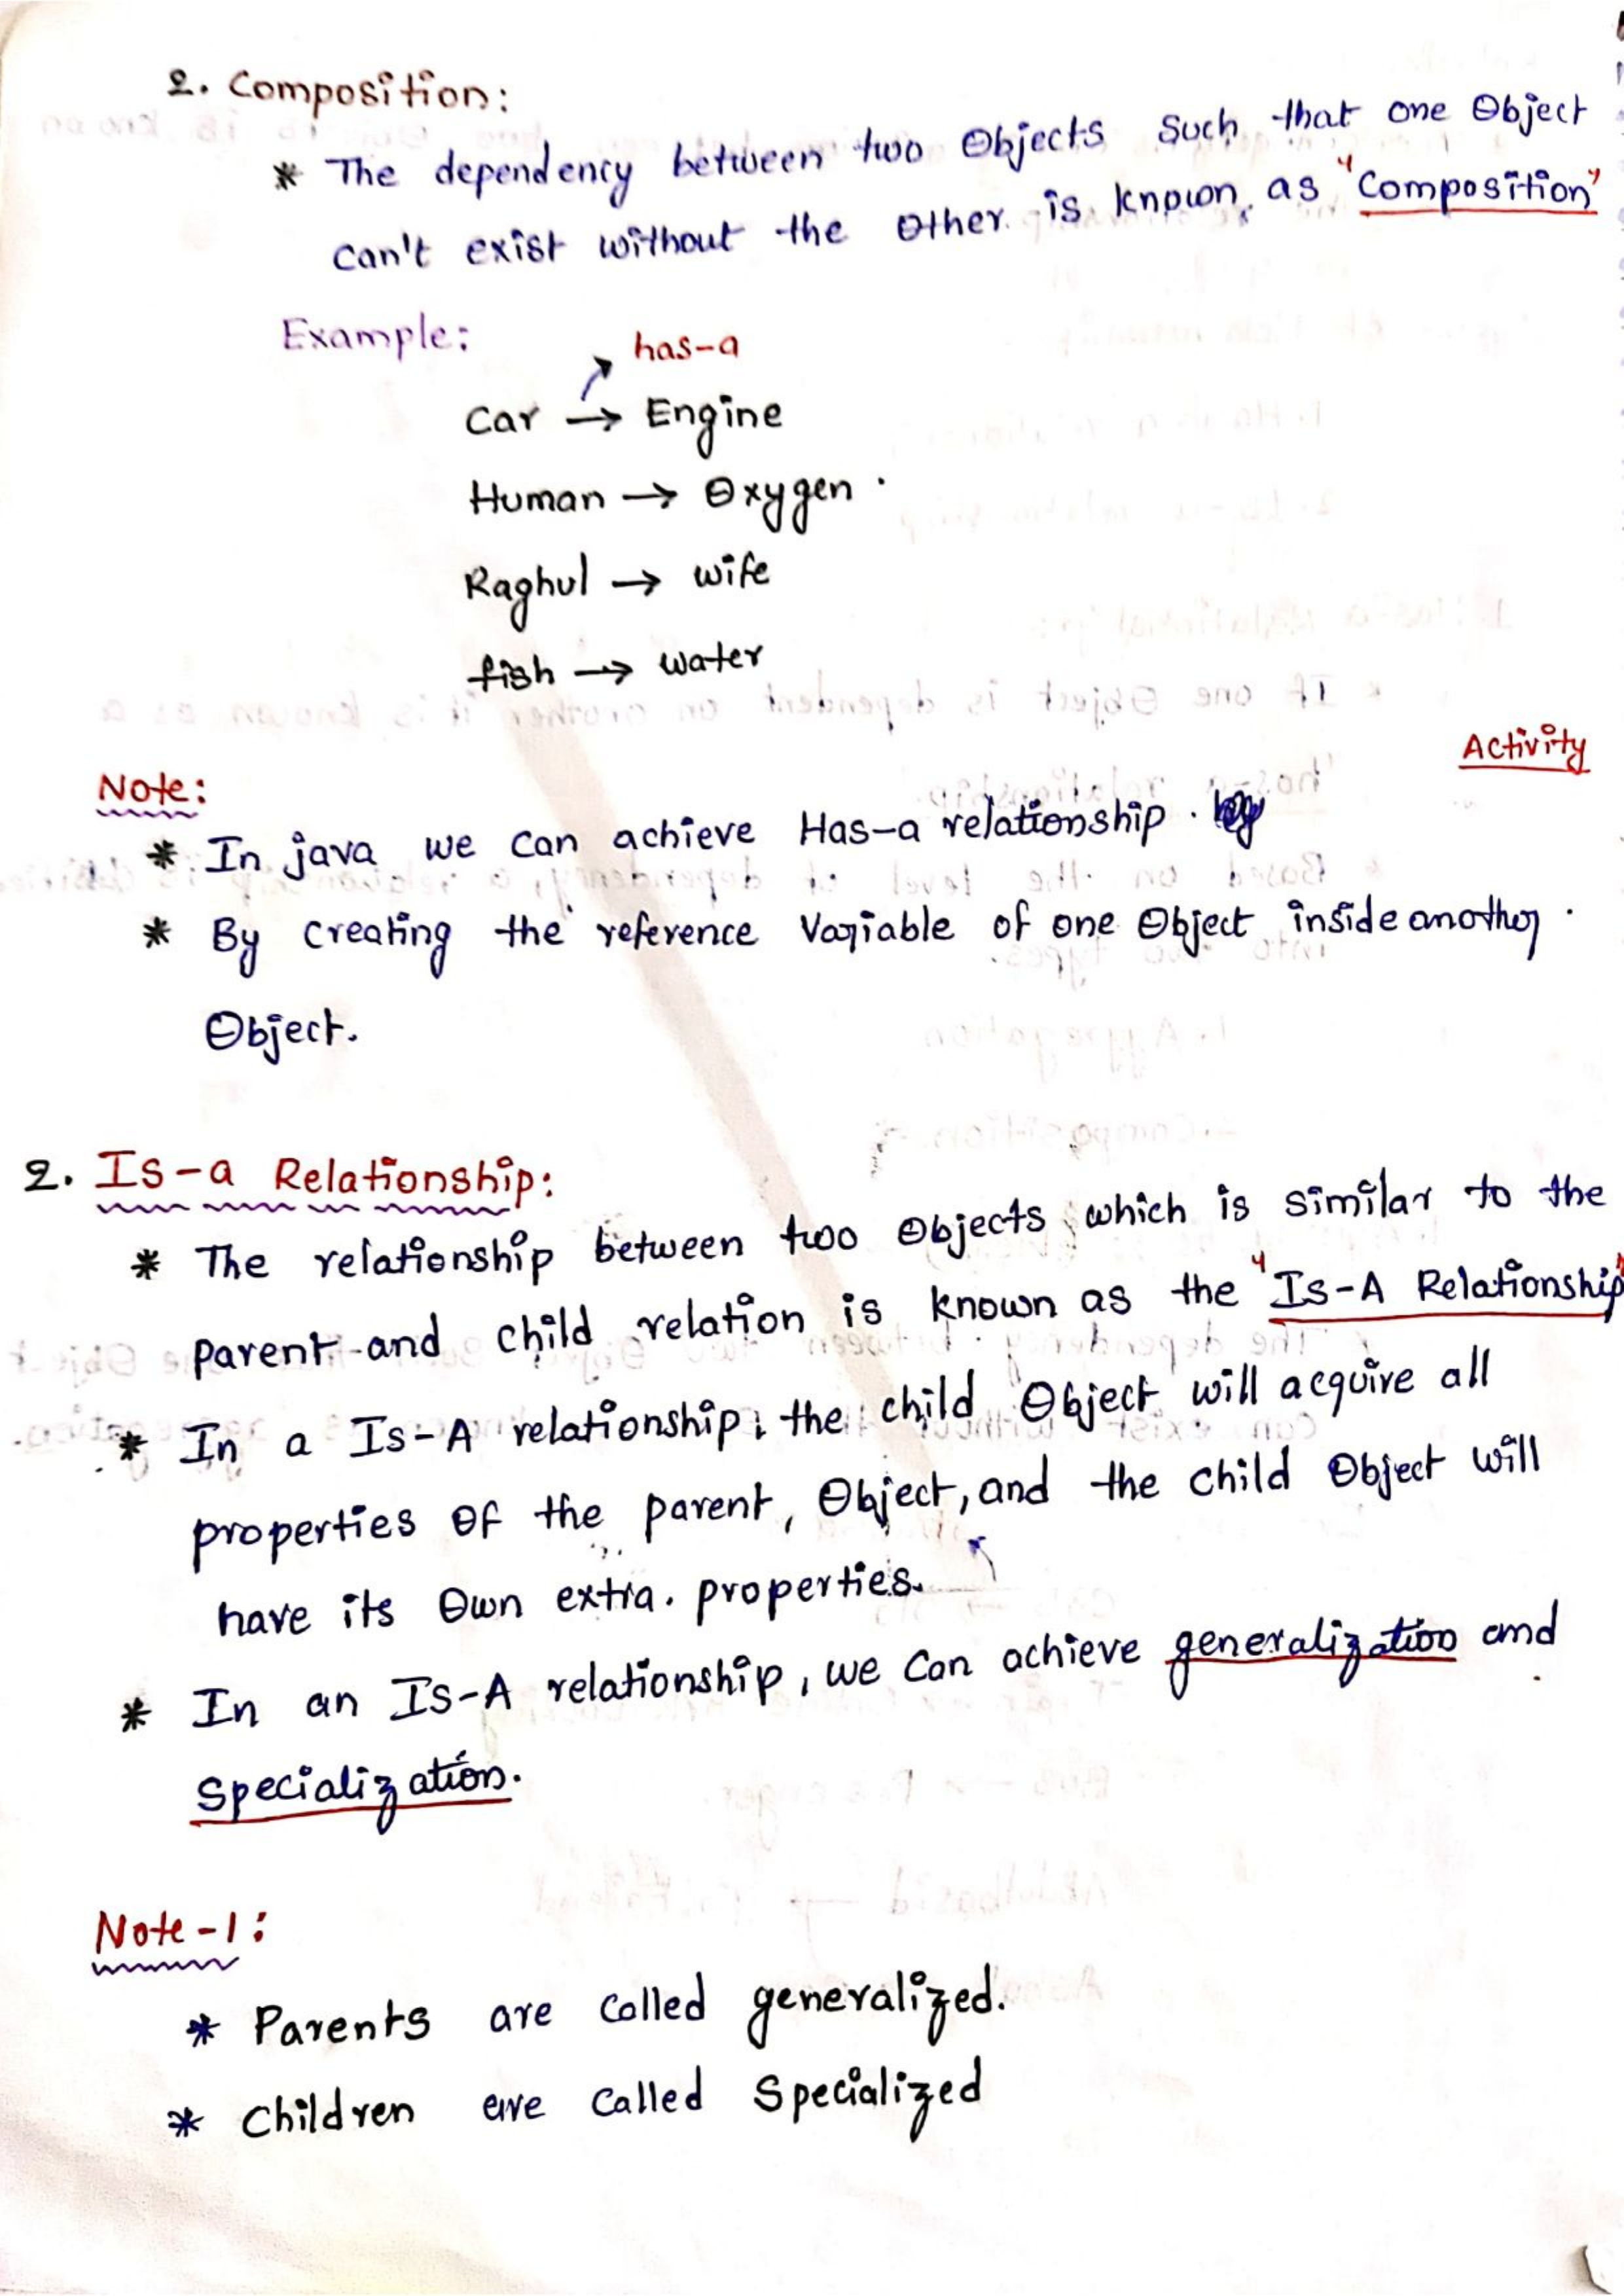 2. Composition:
* The dependency between two Objects such that one Object
can't exist without the other is known as "Composition"
Example:
has-a
Car → Engine
Human → Oxygen.
Raghul → wife
fish → water
Activity
Note:
* In java we can achieve Has-a relationship.
* By creating the reference Variable of one Object inside another.
Object.
2. Is-a Relationship:
* The relationship between two objects which is similar to the
parent and child relation is known as the "Is-A Relationship"
* In a Is-A relationship, the child Object will acquire all
properties of the parent, Object, and the child Object will
have its own extra. properties.
* In an Is-A relationship, we can achieve generalization and
Specialization.
Note-1:
* Parents are called generalized.
* Children are called Specialized